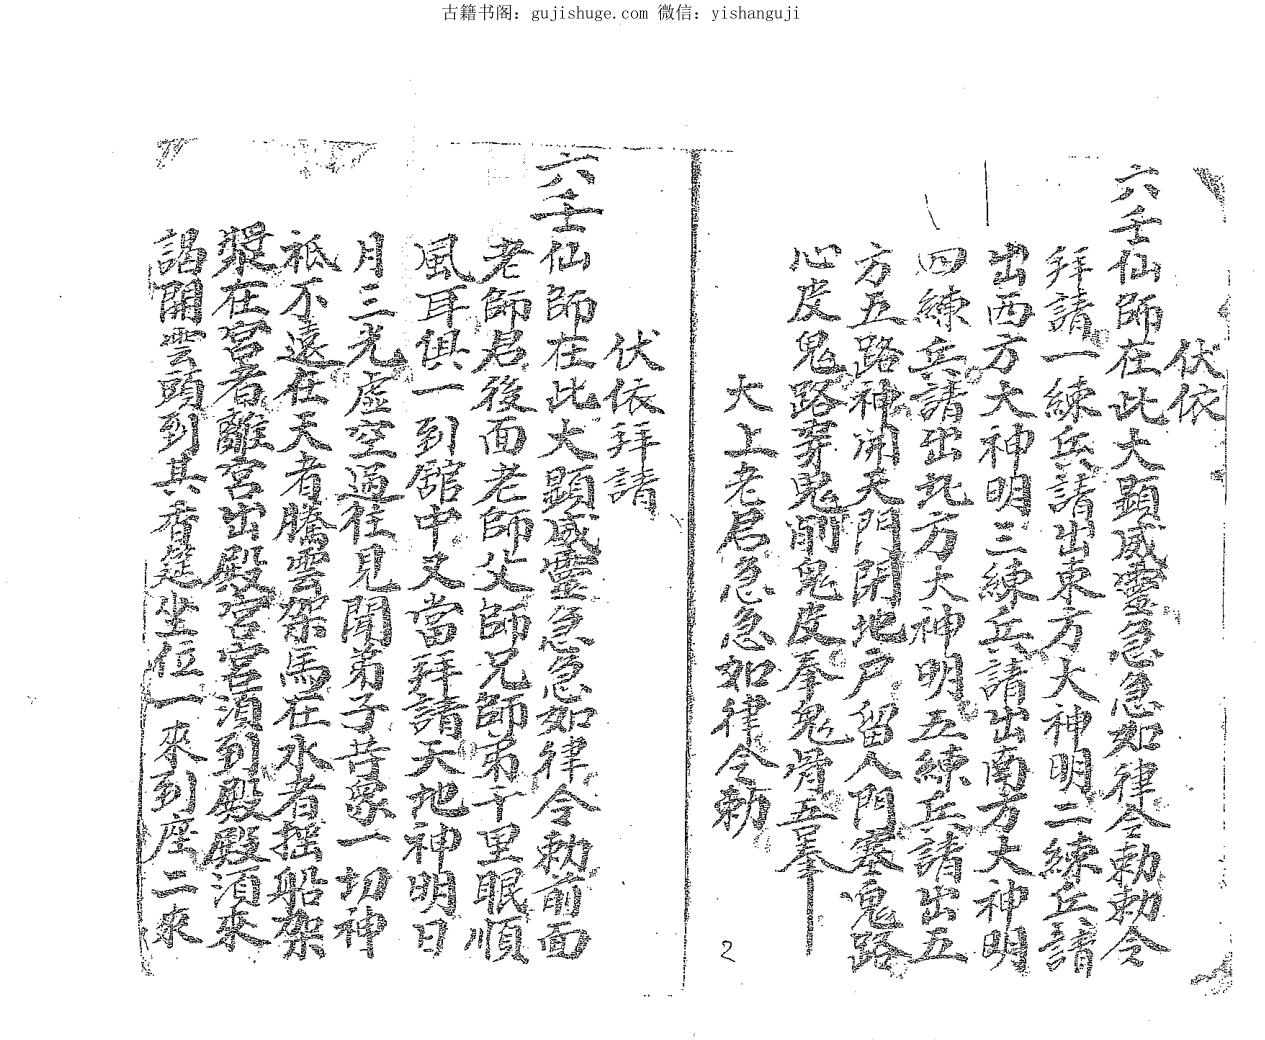 古籍书阁：gujishuge.com 微信：yishanguji
伏依
六壬仙師在此大顕威靈急急如律令勅勅令
拜請一練兵請出東方大神明二練兵請
出西方大神明三練兵請出南方大神明
四練兵請出北方大神明五練兵請出五
方五路神開天門閉地户留人門塞鬼路
心皮鬼路穿鬼削鬼皮奉鬼骨五拳
大上老君急急如律令勅
2
伏依拜請
六壬仙師在此大顕威靈急急如律令勅前面
老師君後面老師父師兄師弟千里眼順
風耳俱一到舘中又當拜請天地神明日
月三光虛空過往見聞弟子昔衆一切神
祗不遠在天者騰雲架馬在水者摇船架
漿在宮者離宮出殿宮宮湏到殿殿湏來
詔開雲頭到其香筵坐位一來到座二來